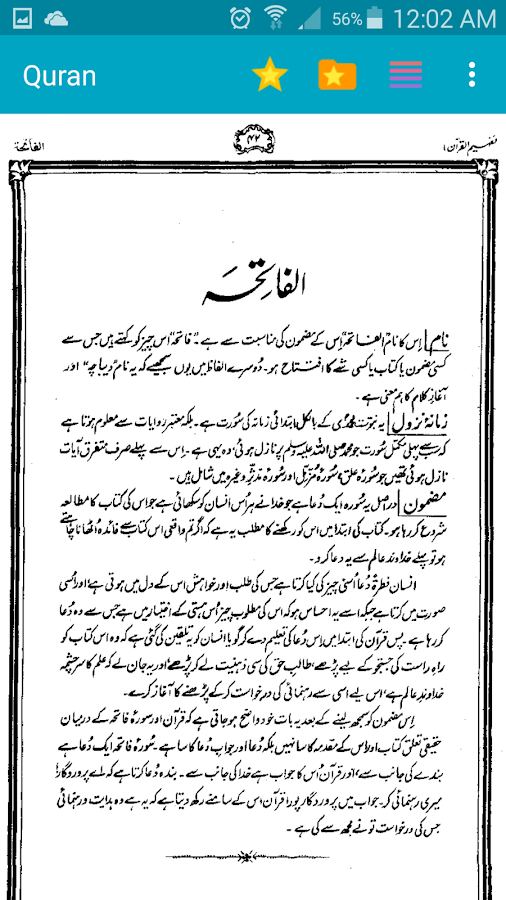 56% 12:02 AM
Quran
تفہیم القرآن ۱
۴۲
الفاتحۃ
الفاتحہ
نام اِس کا نام ”الفاتحہ“ اِس کے مضمون کی مناسبت سے ہے۔ ”فاتحہ“ اُس چیز کو کہتے ہیں جس سے
کسی مضمون یا کتاب یا کسی شے کا افتتاح ہو۔ دُوسرے الفاظ میں یوں سمجھیے کہ یہ نام ”دیباچہ“ اور
آغازِ کلام کا ہم معنی ہے۔
زمانۂ نزول یہ نبوّت محمدی کے بالکل ابتدائی زمانہ کی سُورت ہے۔ بلکہ معتبر روایات سے معلوم ہوتا ہے
کہ سب سے پہلی مکمل سُورت جو محمد صلی اللہ علیہ وسلم پر نازل ہوئی وہ یہی ہے۔ اس سے پہلے صرف متفرق آیات
نازل ہوئی تھیں جو سُورۂ علق، سُورۂ مُزّمّل اور سُورۂ مُدّثّر وغیرہ میں شامل ہیں۔
مضمون دراصل یہ سُورہ ایک دُعا ہے جو خدا نے ہر اُس انسان کو سکھائی ہے جو اس کی کتاب کا مطالعہ
شروع کر رہا ہو۔ کتاب کی ابتدا میں اس کو رکھنے کا مطلب یہ ہے کہ اگر تم واقعی اس کتاب سے فائدہ اُٹھانا چاہتے
ہو تو پہلے خداوندِ عالم سے یہ دعا کرو۔
انسان فطرۃً دُعا اُسی چیز کی کیا کرتا ہے جس کی طلب اور خواہش اس کے دل میں ہوتی ہے، اور اُسی
صورت میں کرتا ہے جبکہ اسے یہ احساس ہو کہ اس کی مطلوب چیز اُس ہستی کے اختیار میں ہے جس سے وہ دُعا
کر رہا ہے۔ پس قرآن کی ابتدا میں اِس دُعا کی تعلیم دے کر گویا انسان کو یہ تلقین کی گئی ہے کہ وہ اس کتاب کو
راہِ راست کی جستجو کے لیے پڑھے، طالبِ حق کی سی ذہنیت لے کر پڑھے، اور یہ جان لے کہ علم کا سرچشمہ
خداوندِ عالم ہے، اس لیے اُسی سے رہنمائی کی درخواست کر کے پڑھنے کا آغاز کرے۔
اِس مضمون کو سمجھ لینے کے بعد یہ بات خود واضح ہو جاتی ہے کہ قرآن اور سورۂ فاتحہ کے درمیان
حقیقی تعلق کتاب اور اس کے مقدمہ کا سا نہیں بلکہ دُعا اور جوابِ دُعا کا سا ہے۔ سُورۂ فاتحہ ایک دُعا ہے
بندے کی جانب سے، اور قرآن اُس کا جواب ہے خدا کی جانب سے۔ بندہ دُعا کرتا ہے کہ اے پروردگار!
میری رہنمائی کر۔ جواب میں پروردگار پورا قرآن اس کے سامنے رکھ دیتا ہے کہ یہ ہے وہ ہدایت و رہنمائی
جس کی درخواست تو نے مجھ سے کی ہے۔